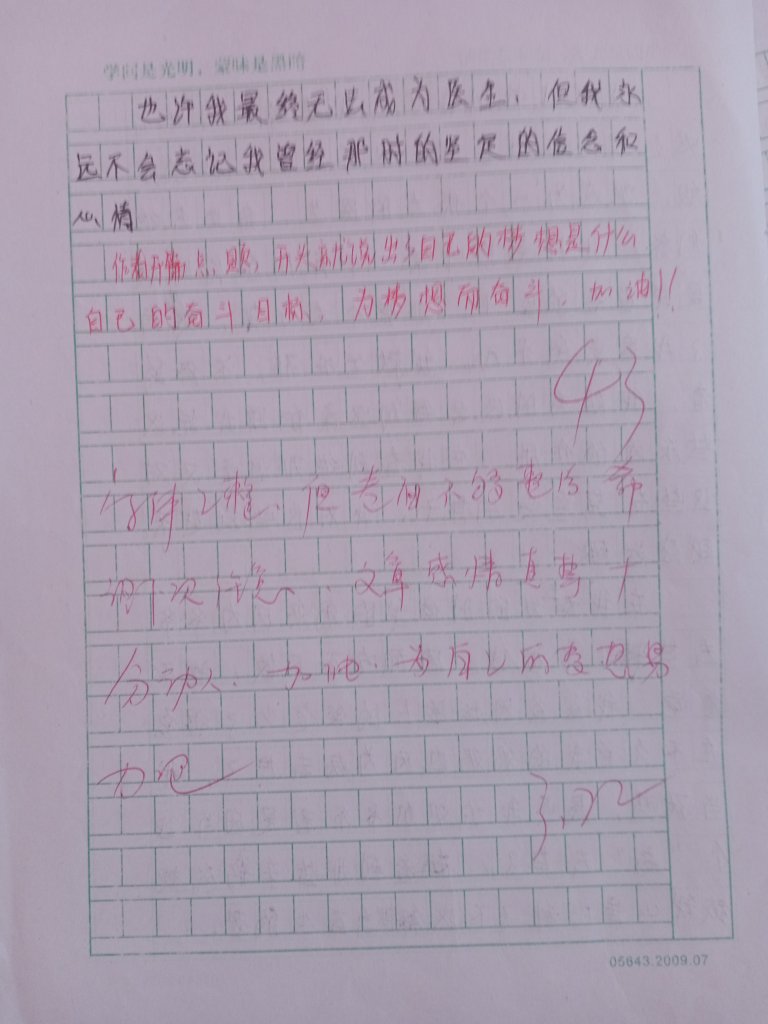 学问是光明，蒙昧是黑暗
也许我最终无法成为医生，但我永
远不会忘记我曾经那时的坚定的信念和
心情
作者开篇点题，开头就说出了自己的梦想是什么
自己的奋斗目标，为梦想而奋斗，加油!!
43
卷面不够
下次注意，文章感情真挚十
分动人，加油，为自己的梦想努
力吧
3.22
05643.2009.07